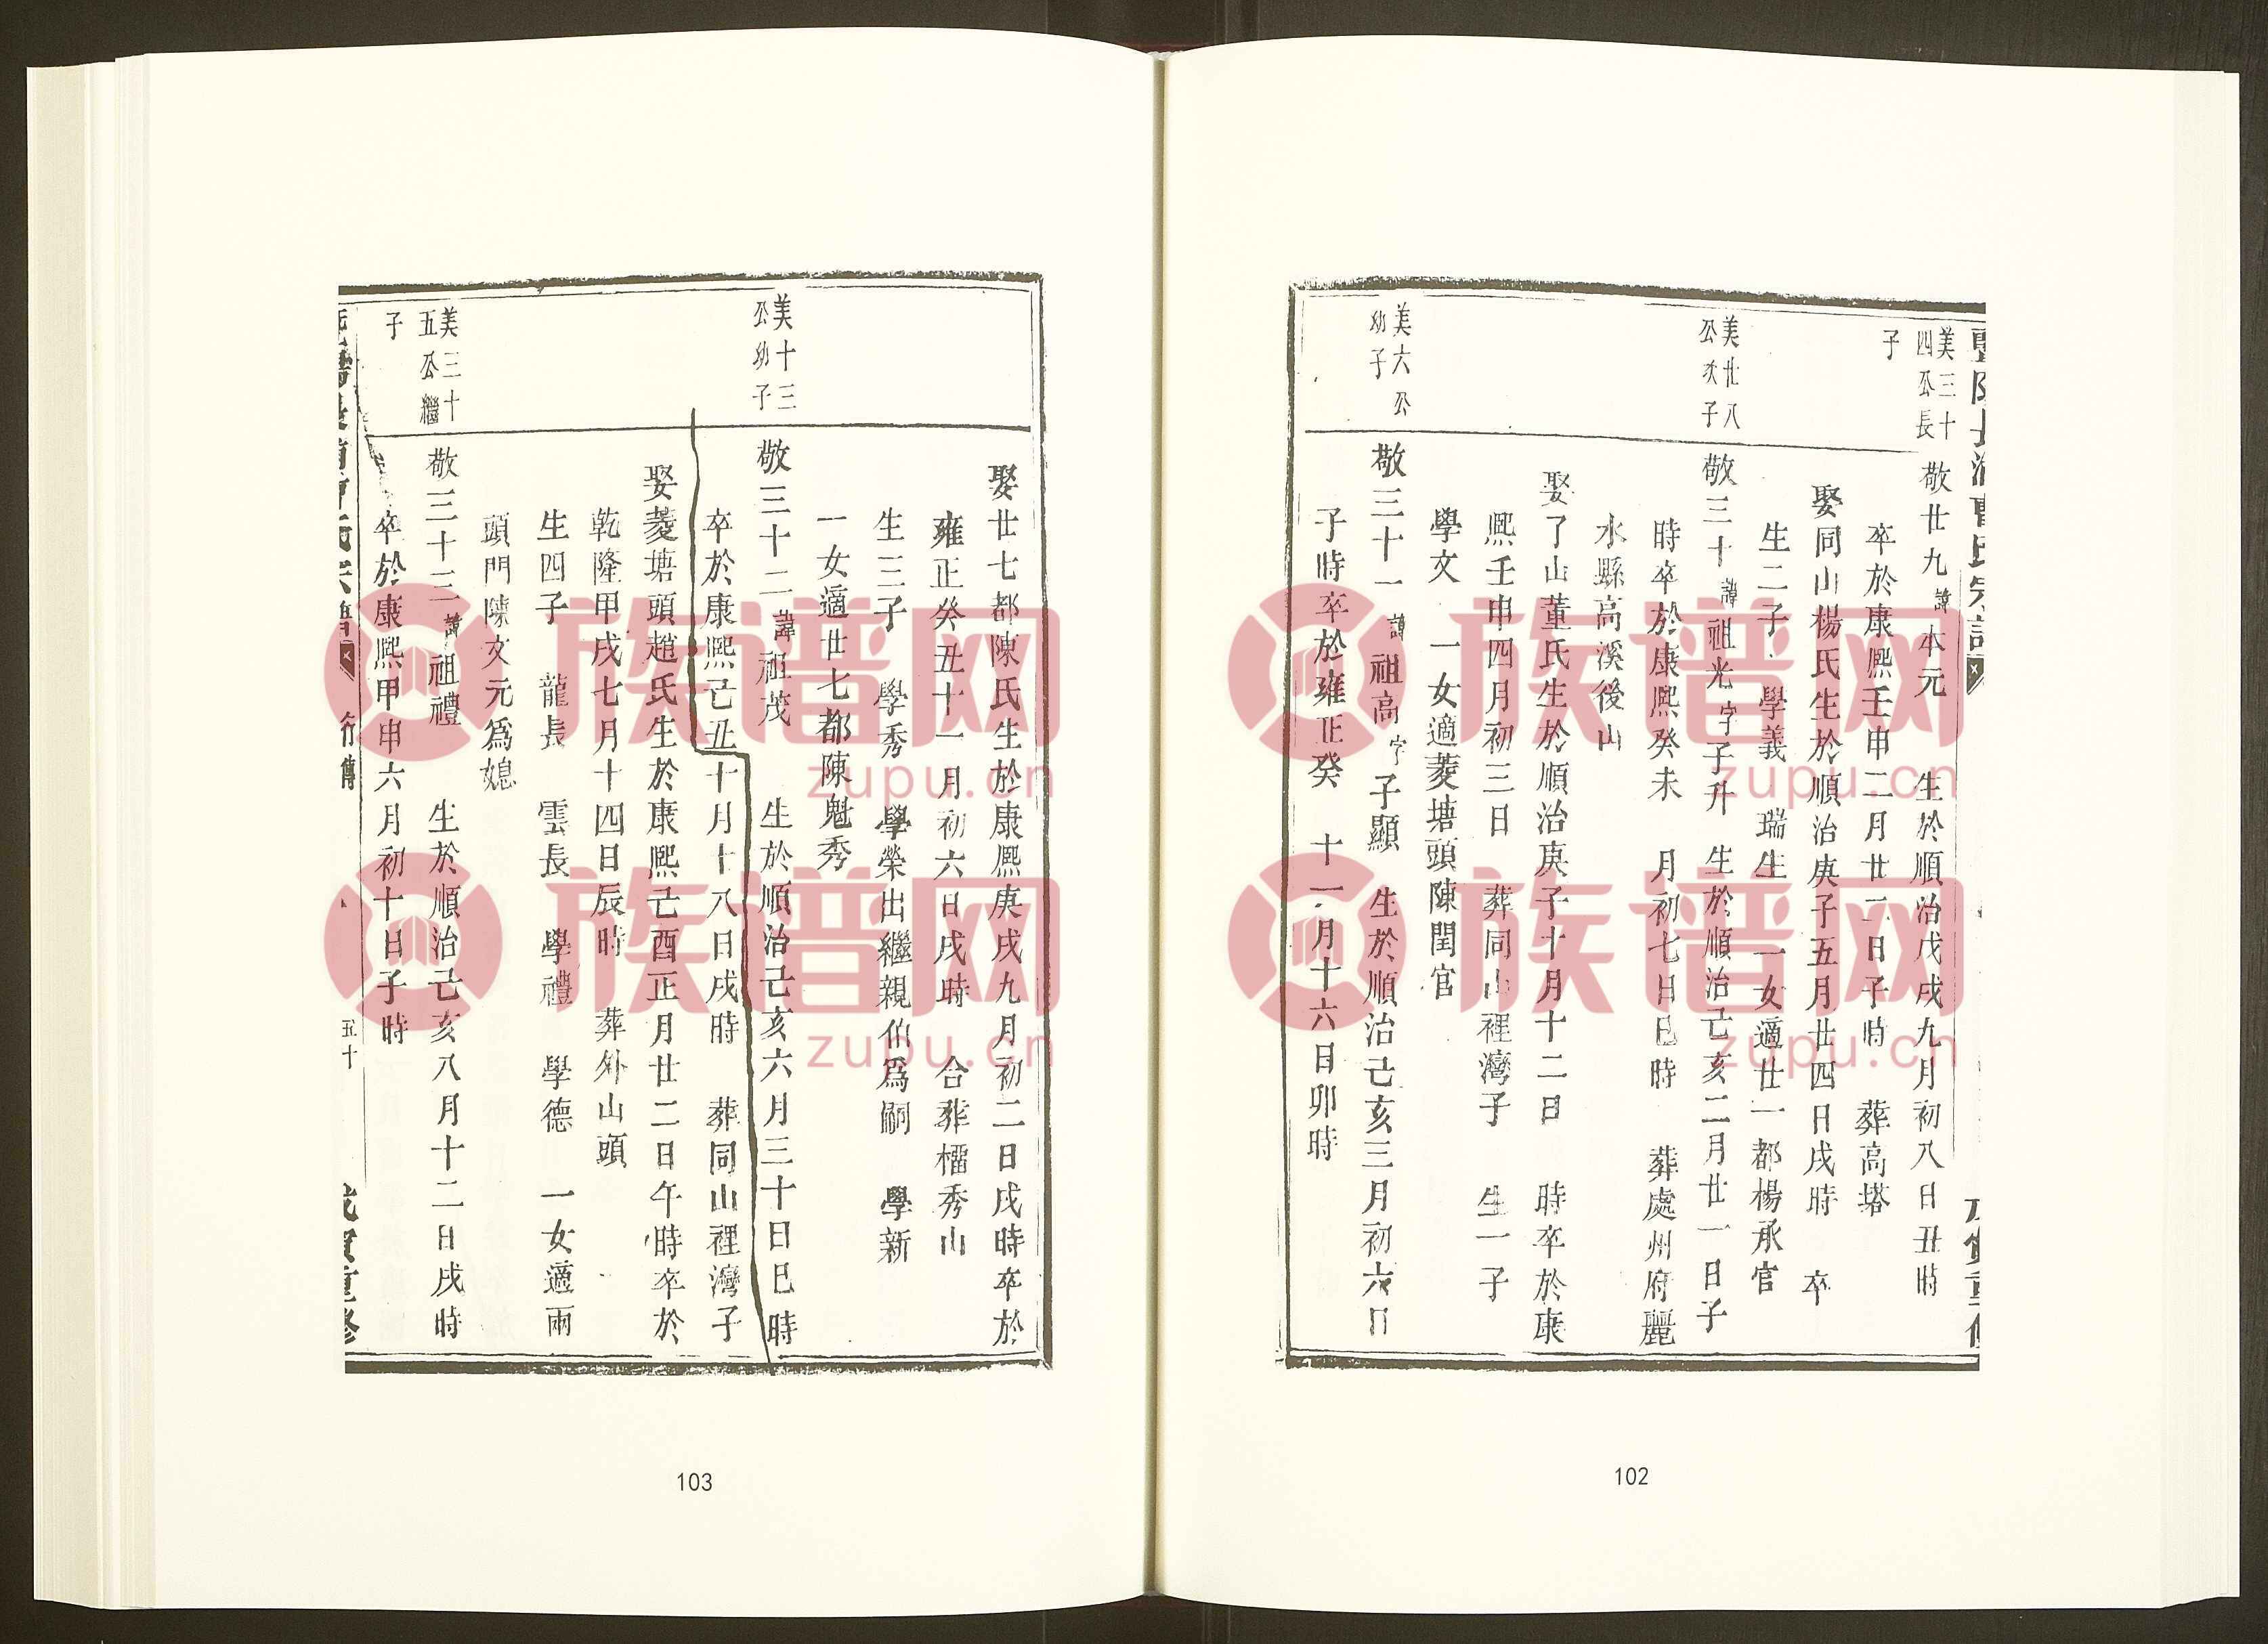 美三十
四公長
子
敬廿九諱本元 生於順治戊戌九月初八日丑時
卒於康熙壬申二月廿二日子時 葬高塔
娶同山楊氏生於順治庚子五月廿四日戌時 卒
生二子 學義 瑞生 一女適廿一都楊承官
美廿八
公次子
敬三十諱祖光字子升 生於順治己亥二月廿一日子
時卒於康熙癸未 月初七日巳時 葬處州府麗
水縣高溪後山
娶了山董氏生於順治庚子十月十二日 時卒於康
熙壬申四月初三日 葬同山裡灣子 生一子
學文 一女適菱塘頭陳閏官
美六公
幼子
敬三十一諱祖高字子顯 生於順治己亥三月初六日
子時卒於雍正癸 十一月十六日卯時
102
娶廿七都陳氏生於康熙庚戌九月初二日戌時卒於
雍正癸丑十一月初六日戌時 合葬櫺秀山
生三子 學秀 學榮出繼親伯爲嗣 學新
一女適廿七都陳魁秀
美十三
公幼子
敬三十二諱祖茂 生於順治己亥六月三十日巳時
卒於康熙己丑十月十八日戌時 葬同山裡灣子
娶菱塘頭趙氏生於康熙己酉正月廿二日午時卒於
乾隆甲戌七月十四日辰時 葬外山頭
生四子 龍長 雲長 學禮 學德 一女適兩
頭門陳文元為媳
美三十
五公繼
子
敬三十三諱祖禮 生於順治己亥八月十二日戌時
卒於康熙甲申六月初十日子時
行傳
五十
重修
103
族谱网
zupu.cn
族谱网
zupu.cn
族谱网
zupu.cn
族谱网
zupu.cn